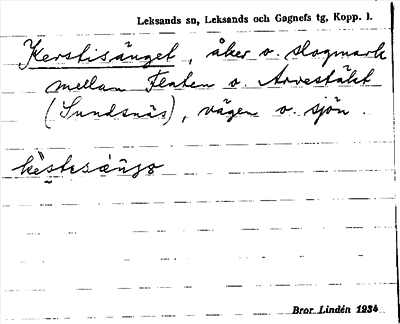 Leksands sn, Leksands och Gagnefs tg, Kopp. l.
Kerstisänget, åker o. slogmark
mellan Flaten o. Arvestäkt
(Sundsnäs), vägen o. sjön.
Bror Lindén 1934